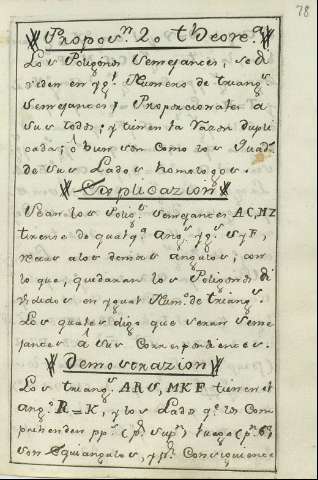 78
Propos.n 20 theore.a
Los Poligonos Semejantes, se di
viden en yg.l Numero de triang.s
Semejantes; Proporcionales a
sus todos; y tienen la razon dupli
cada; ô bien son Como los Quad.s
de sus Lados homologos.
Explicazion
Sean los Polig.s Semejantes AC, MZ
tirense de qualq.a Ang.s yg.s S y F,
rectas alos demas angulos; con
lo que, quedaran los Poligonos di
vididos en ygual Num.o de triang.s
Los quales digo que seran Seme
jantes â sus Correspondientes.
Demostrazion
Los triang.s ARS, MKF tienen el
ang.o R=K, y los Lados q.e los Com
prehenden pp.s (p.r sup.n) luego (p.n 6)
son Equiangulos, y p.r Consiguiente